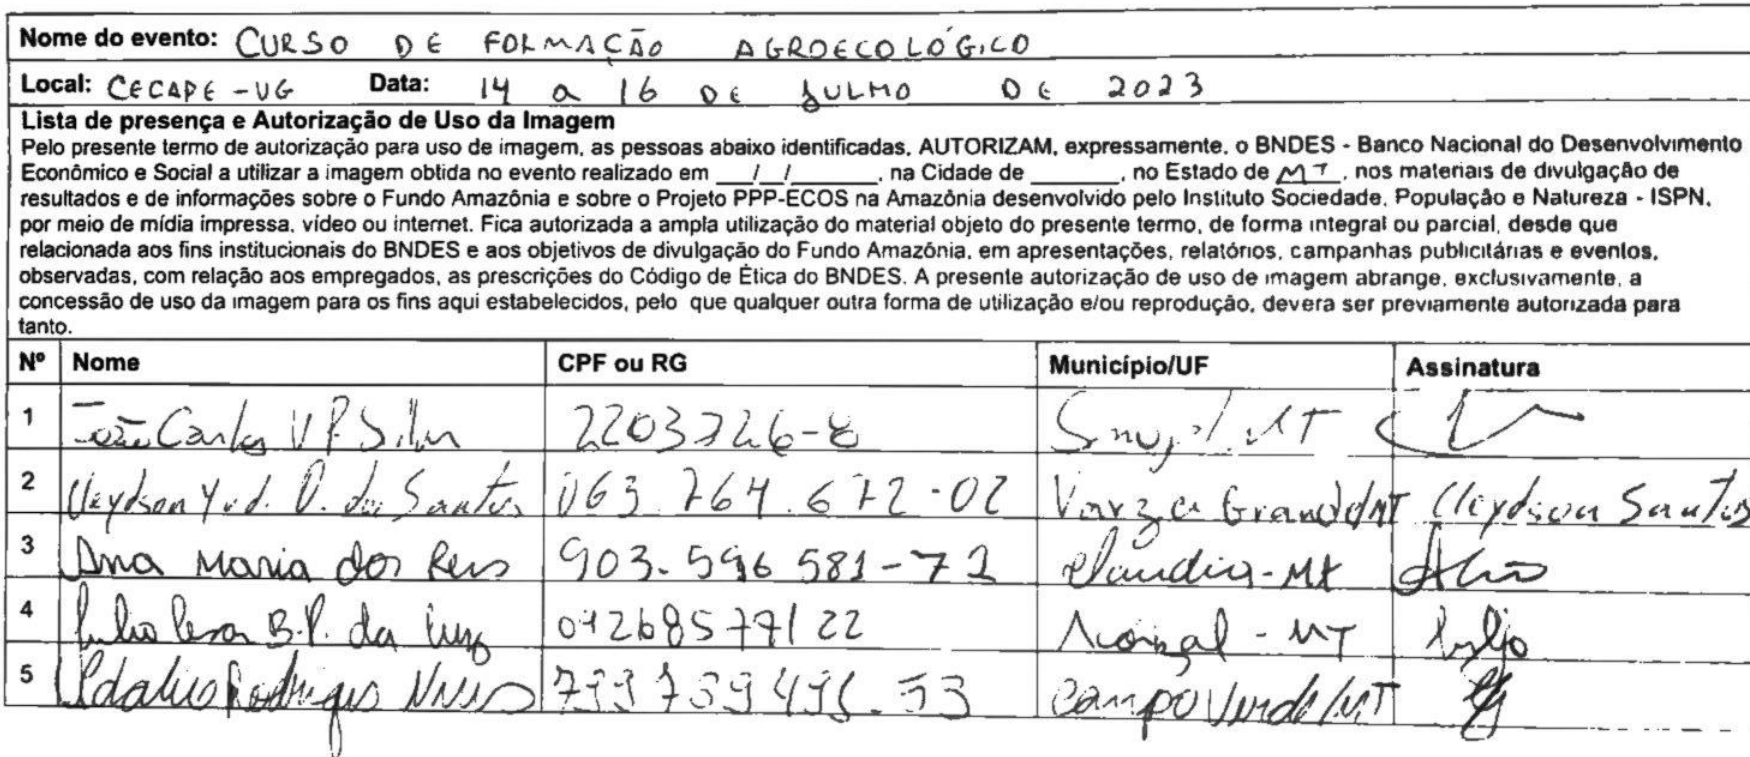 Nome do evento: CURSO DE FORMAÇÃO AGROECOLÓGICO
Local: CECAPE - VG Data: 14 a 16 DE JULHO DE 2023
Lista de presença e Autorização de Uso da Imagem
Pelo presente termo de autorização para uso de imagem, as pessoas abaixo identificadas, AUTORIZAM, expressamente, o BNDES - Banco Nacional do Desenvolvimento
Econômico e Social a utilizar a imagem obtida no evento realizado em ___/__/______, na Cidade de ______, no Estado de MT, nos materiais de divulgação de
resultados e de informações sobre o Fundo Amazônia e sobre o Projeto PPP-ECOS na Amazônia desenvolvido pelo Instituto Sociedade, População e Natureza - ISPN,
por meio de mídia impressa, vídeo ou internet. Fica autorizada a ampla utilização do material objeto do presente termo, de forma integral ou parcial, desde que
relacionada aos fins institucionais do BNDES e aos objetivos de divulgação do Fundo Amazônia, em apresentações, relatórios, campanhas publicitárias e eventos,
observadas, com relação aos empregados, as prescrições do Código de Ética do BNDES. A presente autorização de uso de imagem abrange, exclusivamente, a
concessão de uso da imagem para os fins aqui estabelecidos, pelo que qualquer outra forma de utilização e/ou reprodução, devera ser previamente autorizada para
tanto.
Nº Nome CPF ou RG Município/UF Assinatura
1 João Carlos V P Silva MT
2 Cleydson D. dos Santos 063.764.672-02 Varzea Grande/MT Cleydson Santos
3 Ana Maria dos Reis 903.596 581-72 Claudia-MT
4 B.P. da - MT
5 Rodrigues Campo Verde/MT